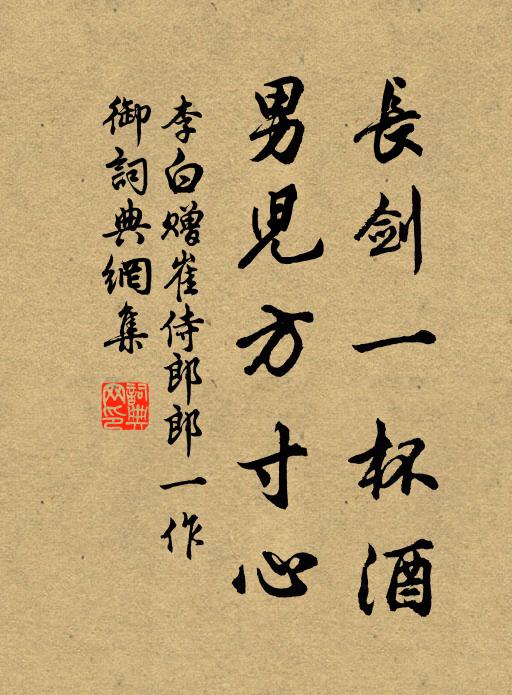 長劍一杯酒
男兒方寸心
李白贈崔侍郎郎一作
御詞典網集
詞典
网印